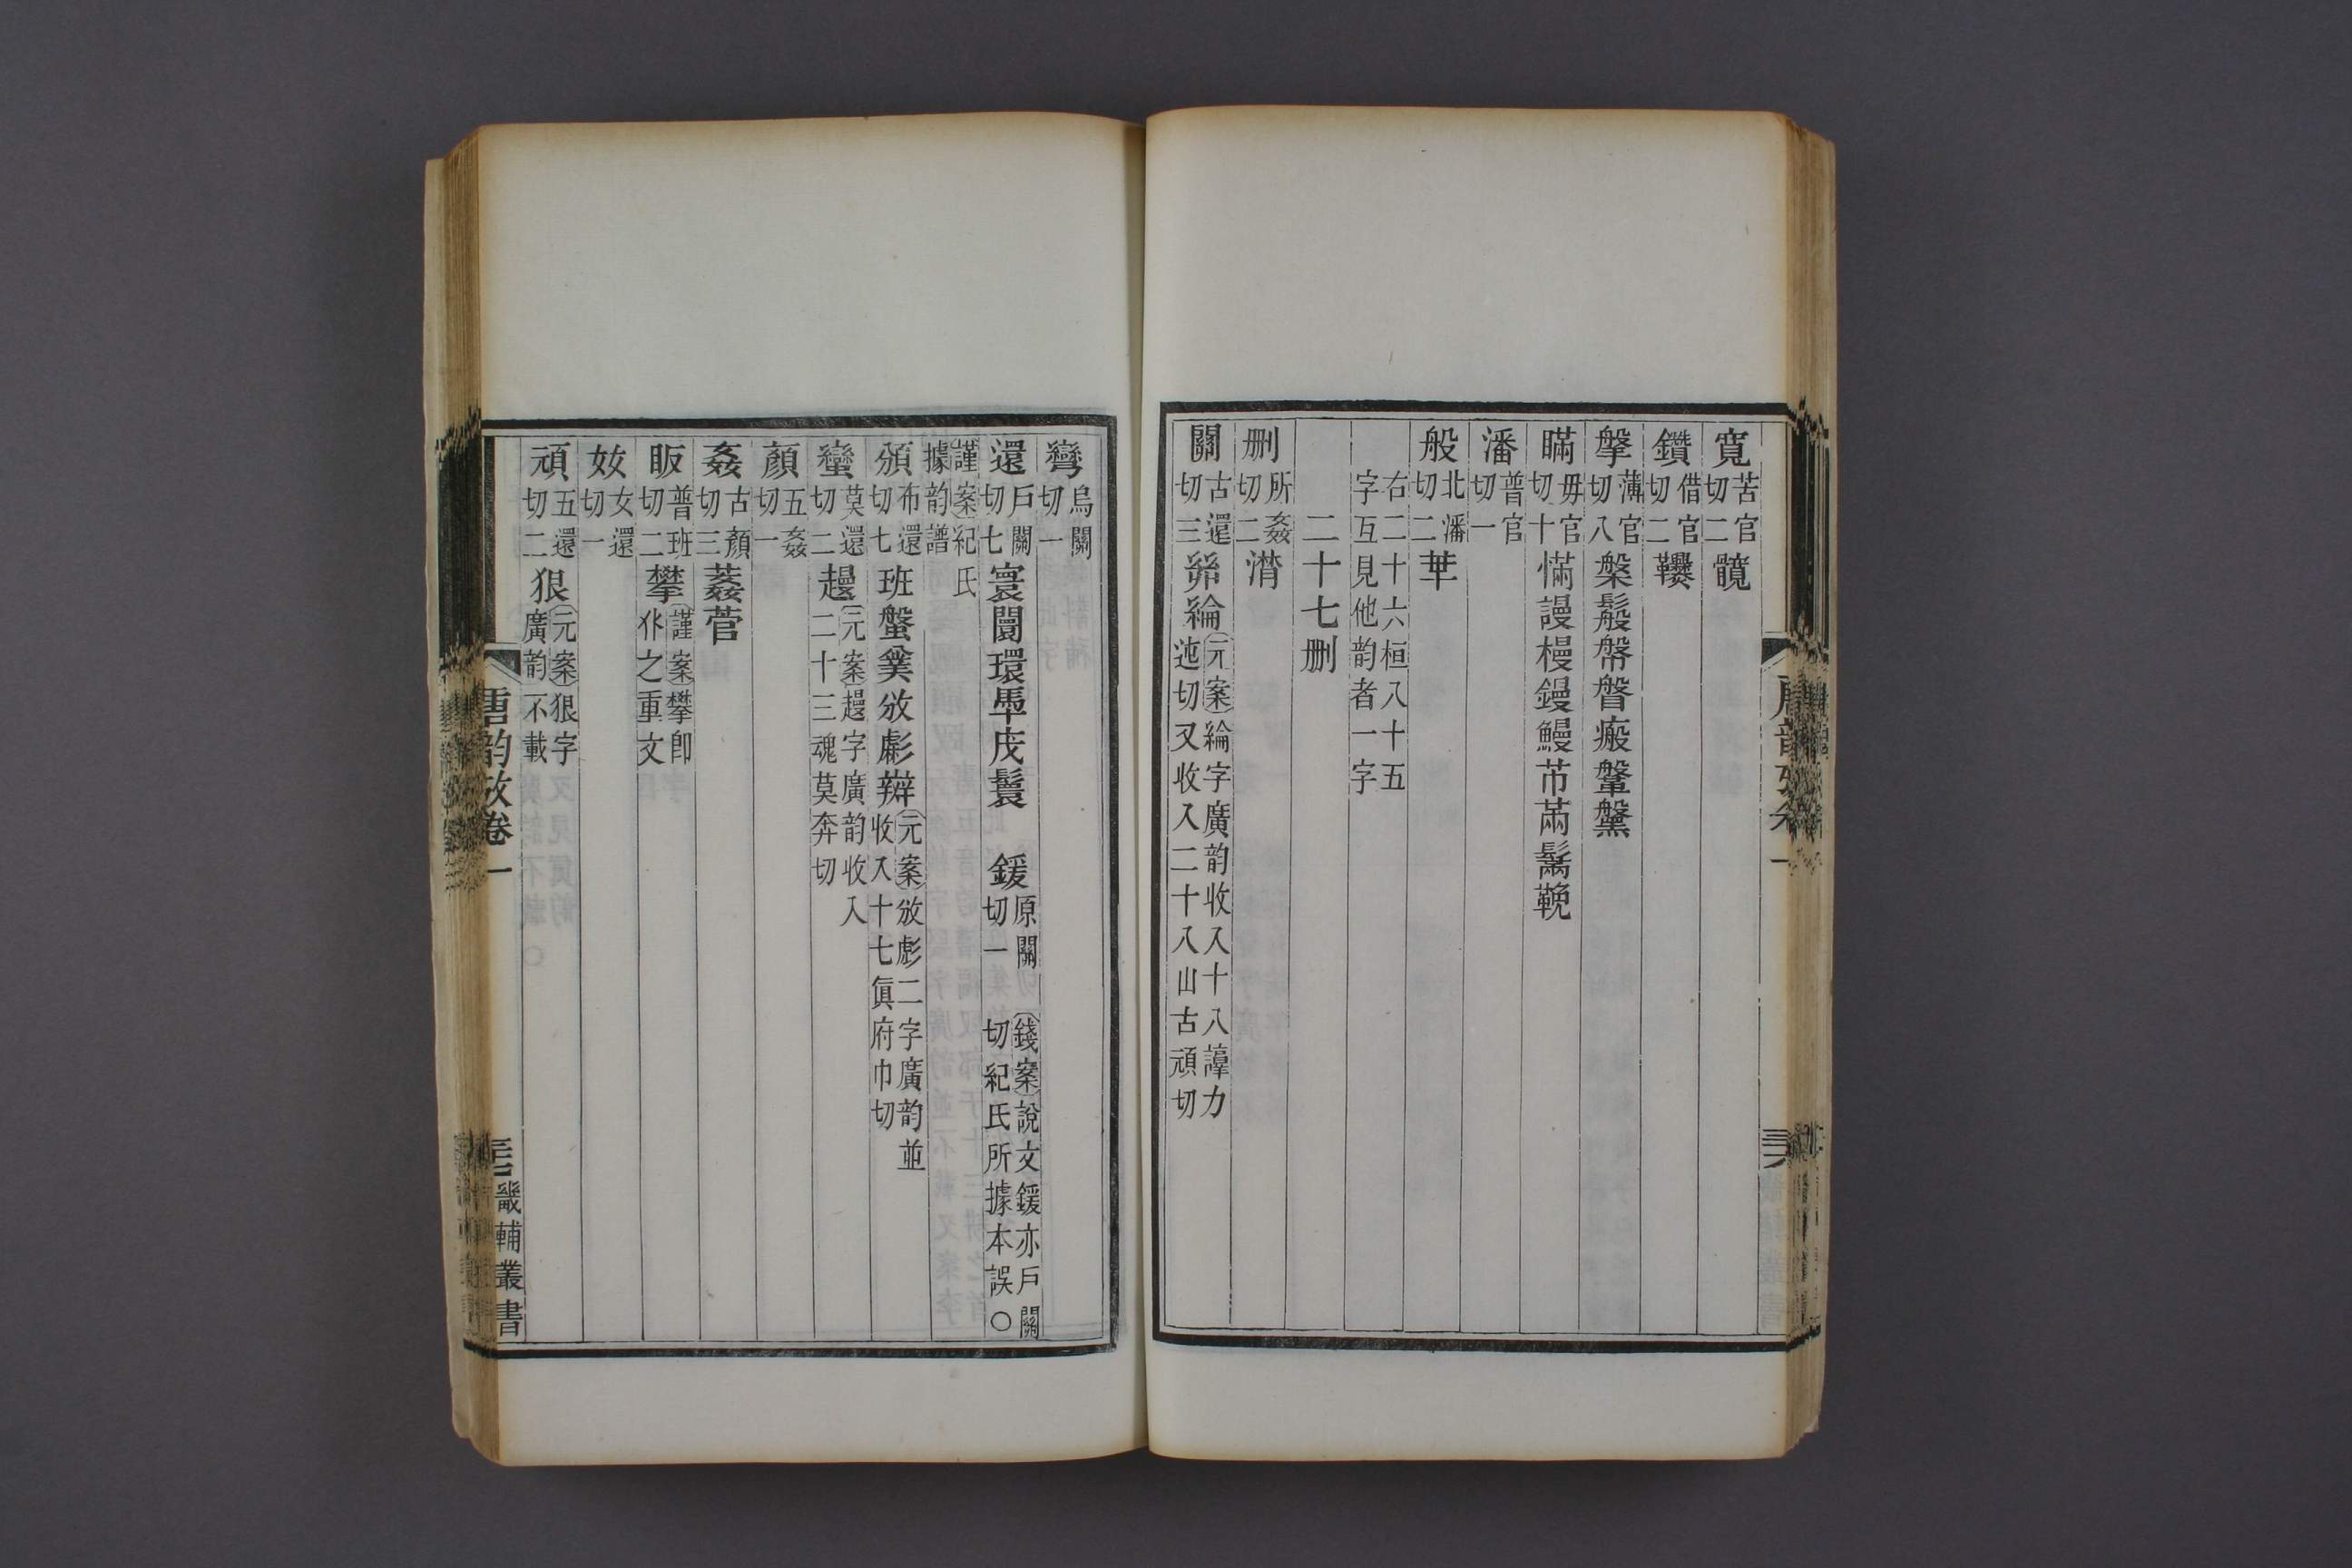 寬苦官切二髖
鑽借官切二韉
搫薄官切八槃鬆幋䁂瘢鞶䰉
瞞毋官切十慲謾槾鏝鰻㒼鬗鞔
潘普官切一
般北潘切二𠦒
右二十六桓八十五字互見他韵者一字
二十七刪
刪所姦切二潸
關古還切三𢇇綸元案綸字廣韵收入十八諄力迍切又收入二十八山古頑切
彎烏關切一
還戶關切七寰闤環馬𢈠鬟　鍰原關切一　錢案說文鍰亦戶關切紀氏所據本誤〇
謹案紀氏據韵譜
頒布還切七班螌𤯛攽彪辬元案攽彪二字廣韵並收入十七眞府巾切
蠻莫還切二䟂元案䟂字廣韵收入二十三魂莫奔切
顏五姦切一
姦古顏切三葌菅
眅普班切二攀謹案攀即𠬜之重文
奻女還切一
頑五還切二狠元案狠字廣韵不載
唐韵攷卷一
畿輔叢書